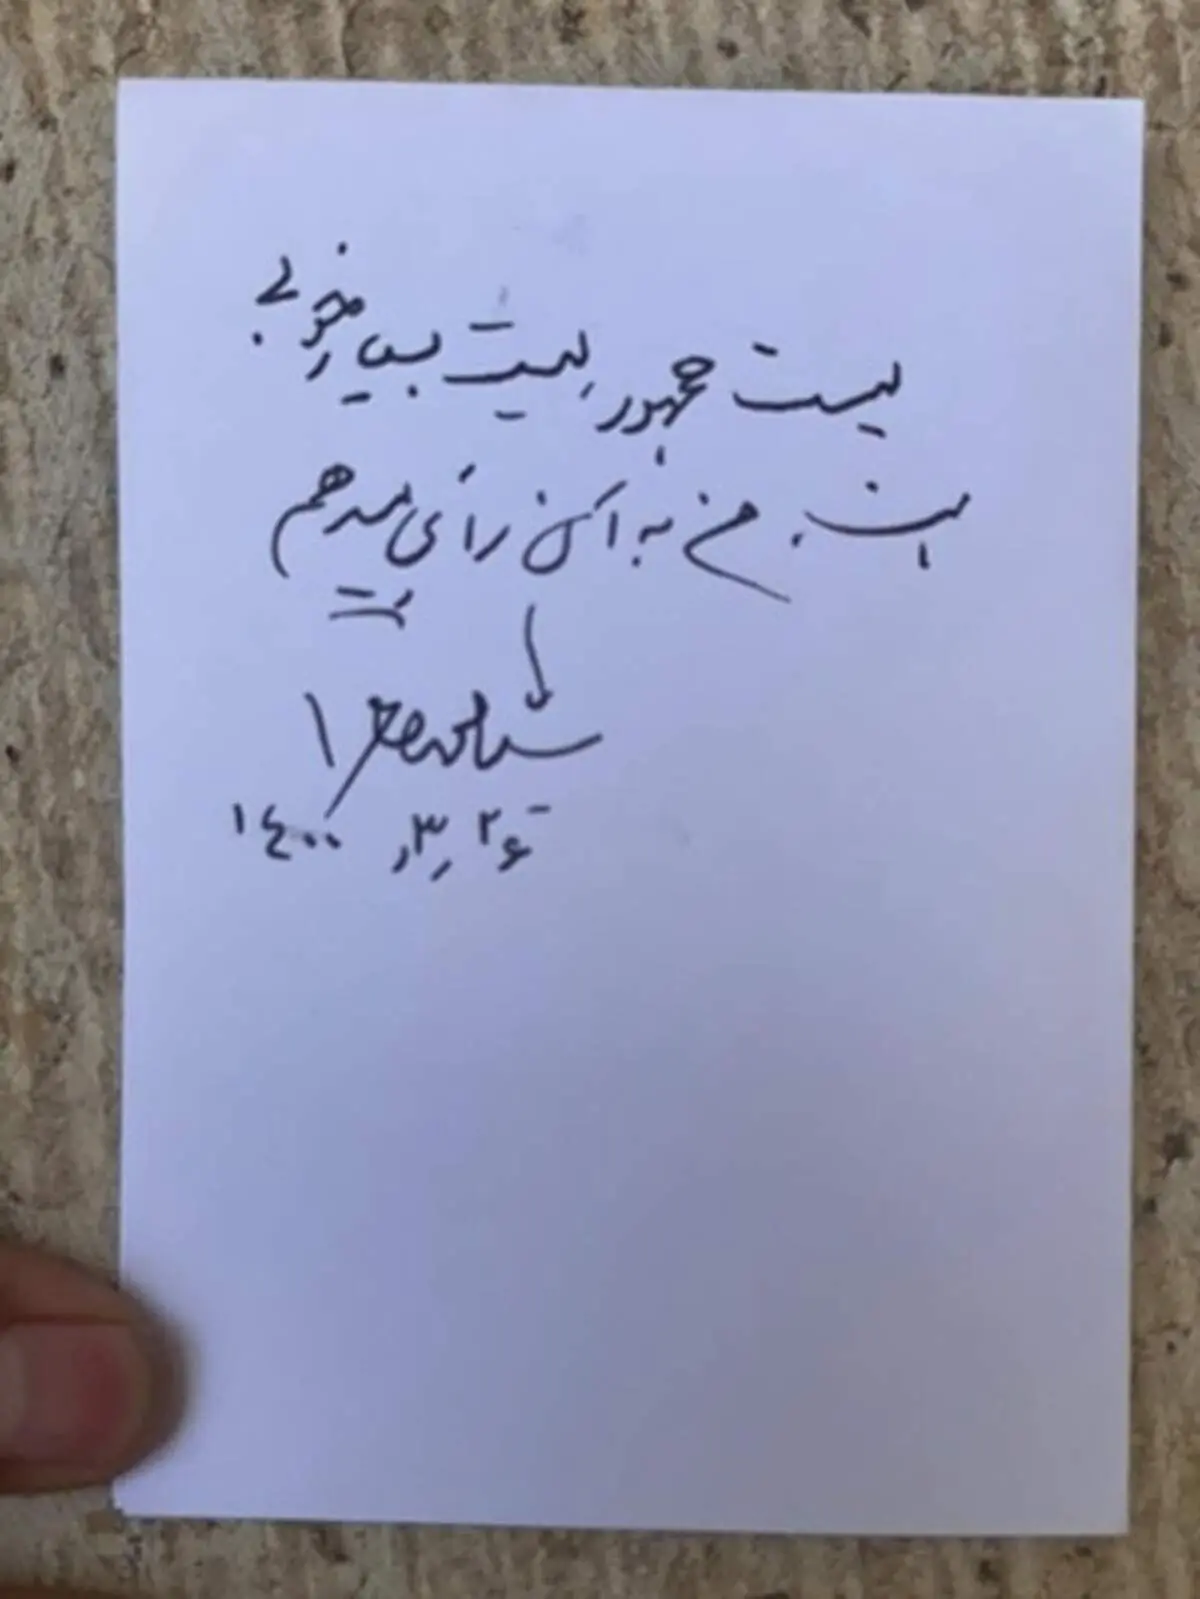 لیست جمهور لیست بسیار خوبی
است. من به آن رأی میدهم
ت ۱۴۰۰,۳,۲۶